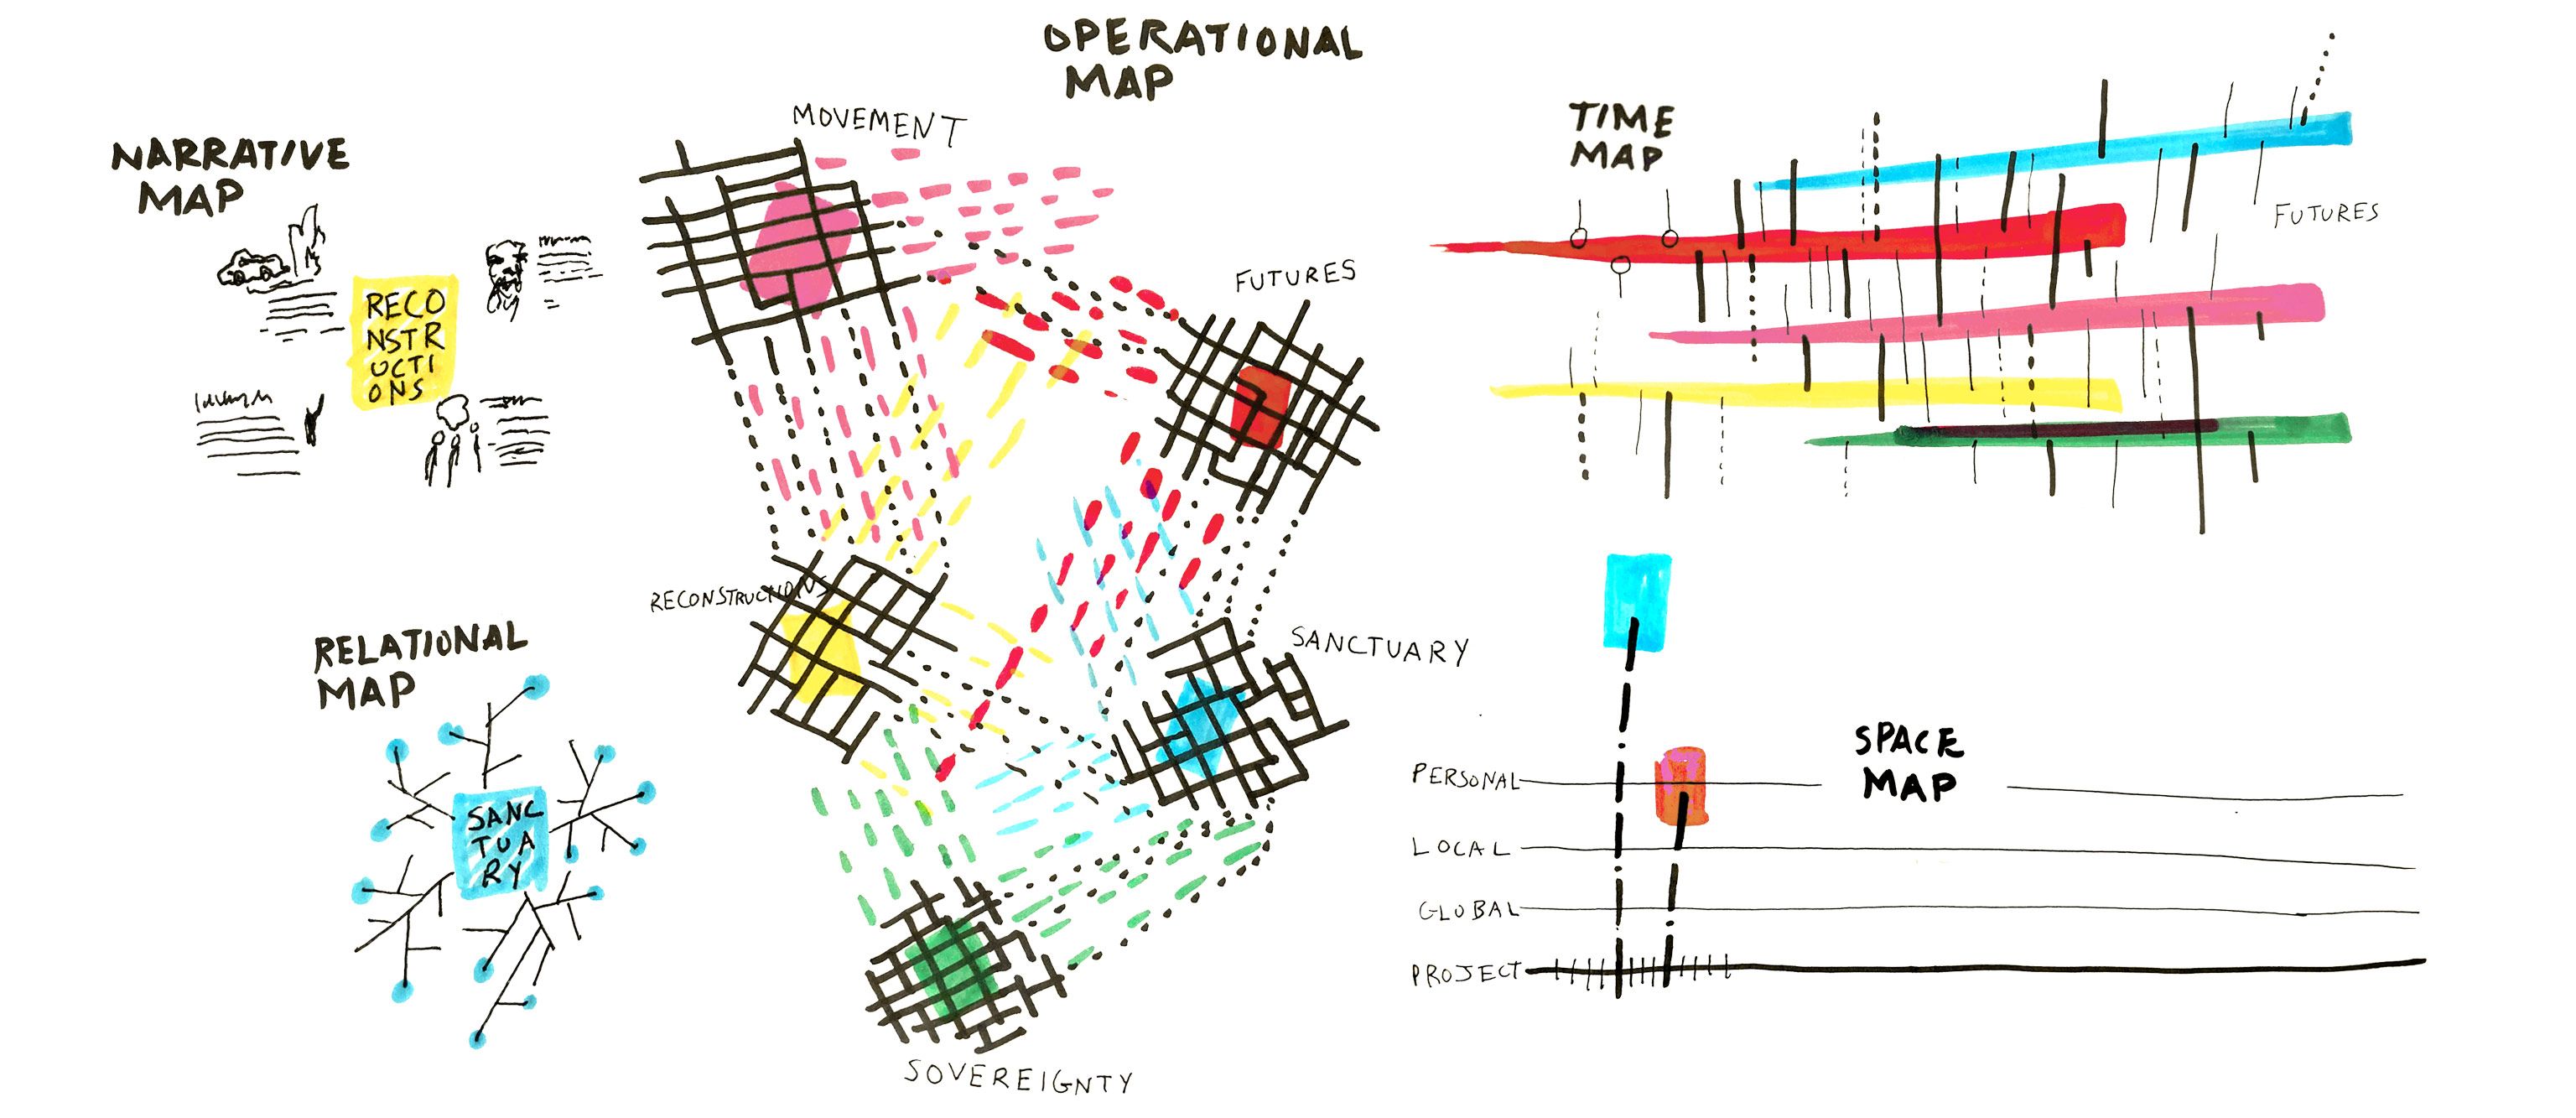 OPERATIONAL
MAP
NARRATIVE
MAP
RECO
NSTR
UCTI
ONS
RELATIONAL
MAP
SANC
TUA
RY
MOVEMENT
FUTURES
RECONSTRUCTIONS
SANCTUARY
SOVEREIGNTY
TIME
MAP
FUTURES
SPACE
MAP
PERSONAL
LOCAL
GLOBAL
PROJECT